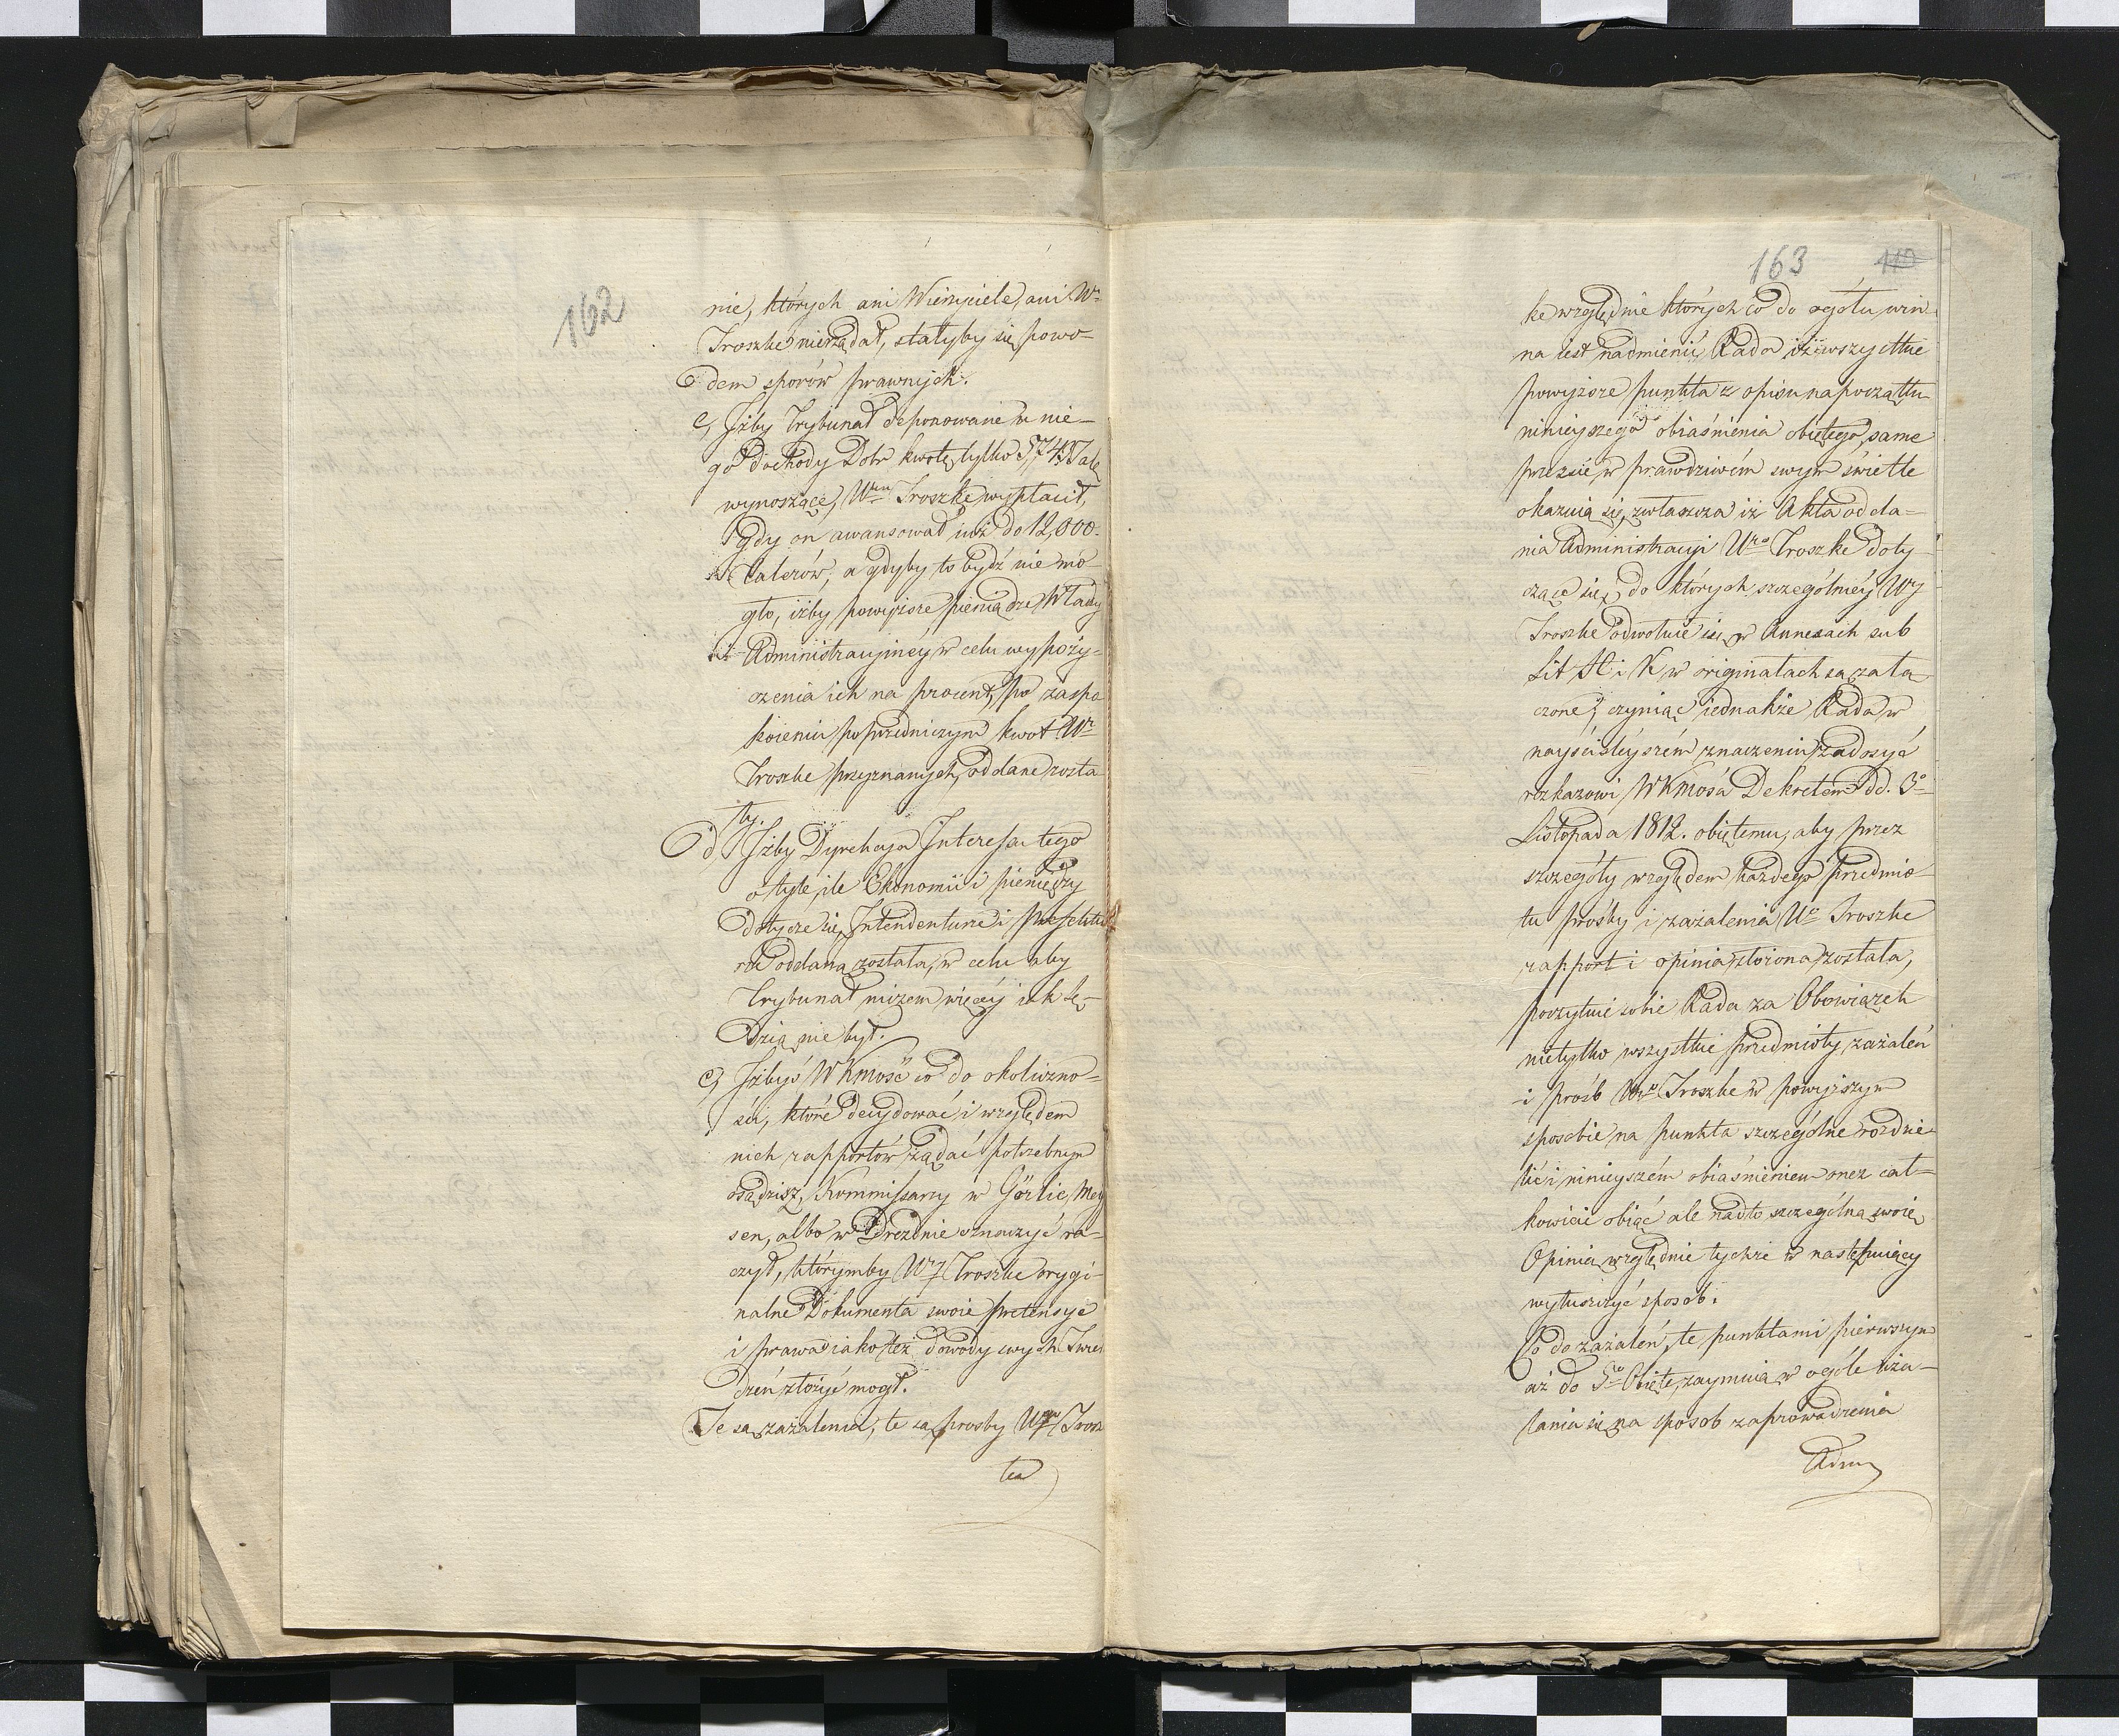 162
nie, których ani Wierzyciele, ani Wr
Troszke nierządał, stałyby się powo-
dem sporów prawnych.
c, Iżby Trybunał deponowane w nie-
go dochody Dobr kwotę tylko 5748 Tale
wynoszące, Uemu Troszke wypłacił,
gdy on awansował iuż do 12,000.
Talerów, a gdyby to bydź nie mo-
gło, iżby powyższe pieniądze Włady
Administracyiney w celu wypoży-
czenia ich na procent, po zaspo
koieniu poprzedniczym kwot Ur
Troszke przyznanych, oddane zosta
ły.
d, Iżby Dyrekcya Interessu tego
o tyle, ile Ekonomii i pieniędzy
dotycze się, Intendenturze i Prefektu
rze oddaną została, w celu aby
Trybunał niczem więcéy iak Sę-
dzią nie był.
e, Iżbyś WKMość co do okoliczno-
ści, które decydować i względem
nich rapportów żądać potrzebnym
osądzisz, Kommissarzy w Görlic, Mey
sen, albo w Dreznie oznaczyć ra-
czył, którymby Wy Troszke orygi-
nalne Dokumenta swoie pretensye
i prawa iako też dowody swych Twier
dzeń złożyć mogł.
Te są zażalenia, te są prosby Ugo Trosz
ka
163
110
ke względnie których co do ogółu win-
na iest nadmienić Rada iż wszystkie
powyższe punkta z opisu na początku
ninieyszego obiaśnienia obiętego, same
przezsię w prawdziwém swym świetle
okazuią się, zwłaszcza iż Akta odda-
nia Administracyi Uro Troszke doty-
czące się, do których szczególniéy Wy
Troszke odwołuie się w Annexach sub
Lit H i K w originałach są zała-
czone; czyniąc iednakże Rada w
nayściśleyszém znaczeniu zadosyć
rozkazowi WKMości Dekretem dd. 3o
Listopada 1812. obiętemu, aby przez
szczegóły względem każdego przedmio-
tu prośby i zażalenia Uo Troszke
rapport i opinia złożona została,
poczytuie sobie Rada za Obowiązek
nietylko wszystkie przedmioty zażaleń
i prośb Ugo Troszke w powyższym
sposobie na punkta szczególne rozdzie-
lić i ninieyszém obiaśnieniem onez cał-
kowicie obiąć ale nadto szczególną swoię
Opinią względnie tychże w następuiący
wyłuszczyć sposob:
Co do zażaleń, te punktami pierwszym
aż do 5go Obięte, zaymuią w ogóle uża-
lania się na sposob zaprowadzenia
Adm